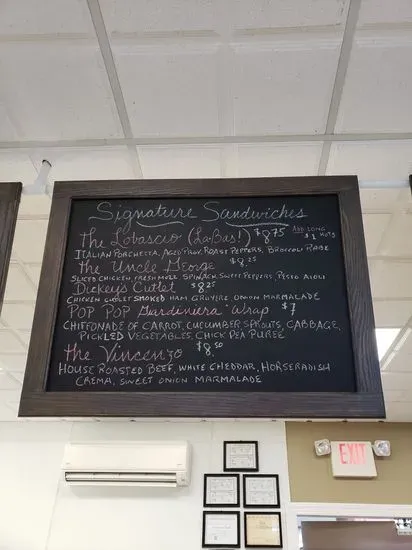 Signature Sandwiches
The Lobascio (LaBas!) $8.75 ADD LONG HOTS $1
ITALIAN PORCHETTA, AGED PROV. ROAST PEPPERS, BROCCOLI RABE
The Uncle George $8.25
SLICED CHICKEN FRESH MOZZ SPINACH, SWEET PEPPERS, PESTO AIOLI
Dickey's Cutlet $8.25
CHICKEN CUTLET SMOKED HAM GRUYERE ONION MARMALADE
POP POP Gardiniera Wrap $7
CHIFFONADE OF CARROT, CUCUMBER SPROUTS, CABBAGE,
PICKLED VEGETABLES, CHICK PEA PUREE
The Vincenzo $8.50
HOUSE ROASTED BEEF, WHITE CHEDDAR, HORSERADISH
CREMA, SWEET ONION MARMALADE
EXIT